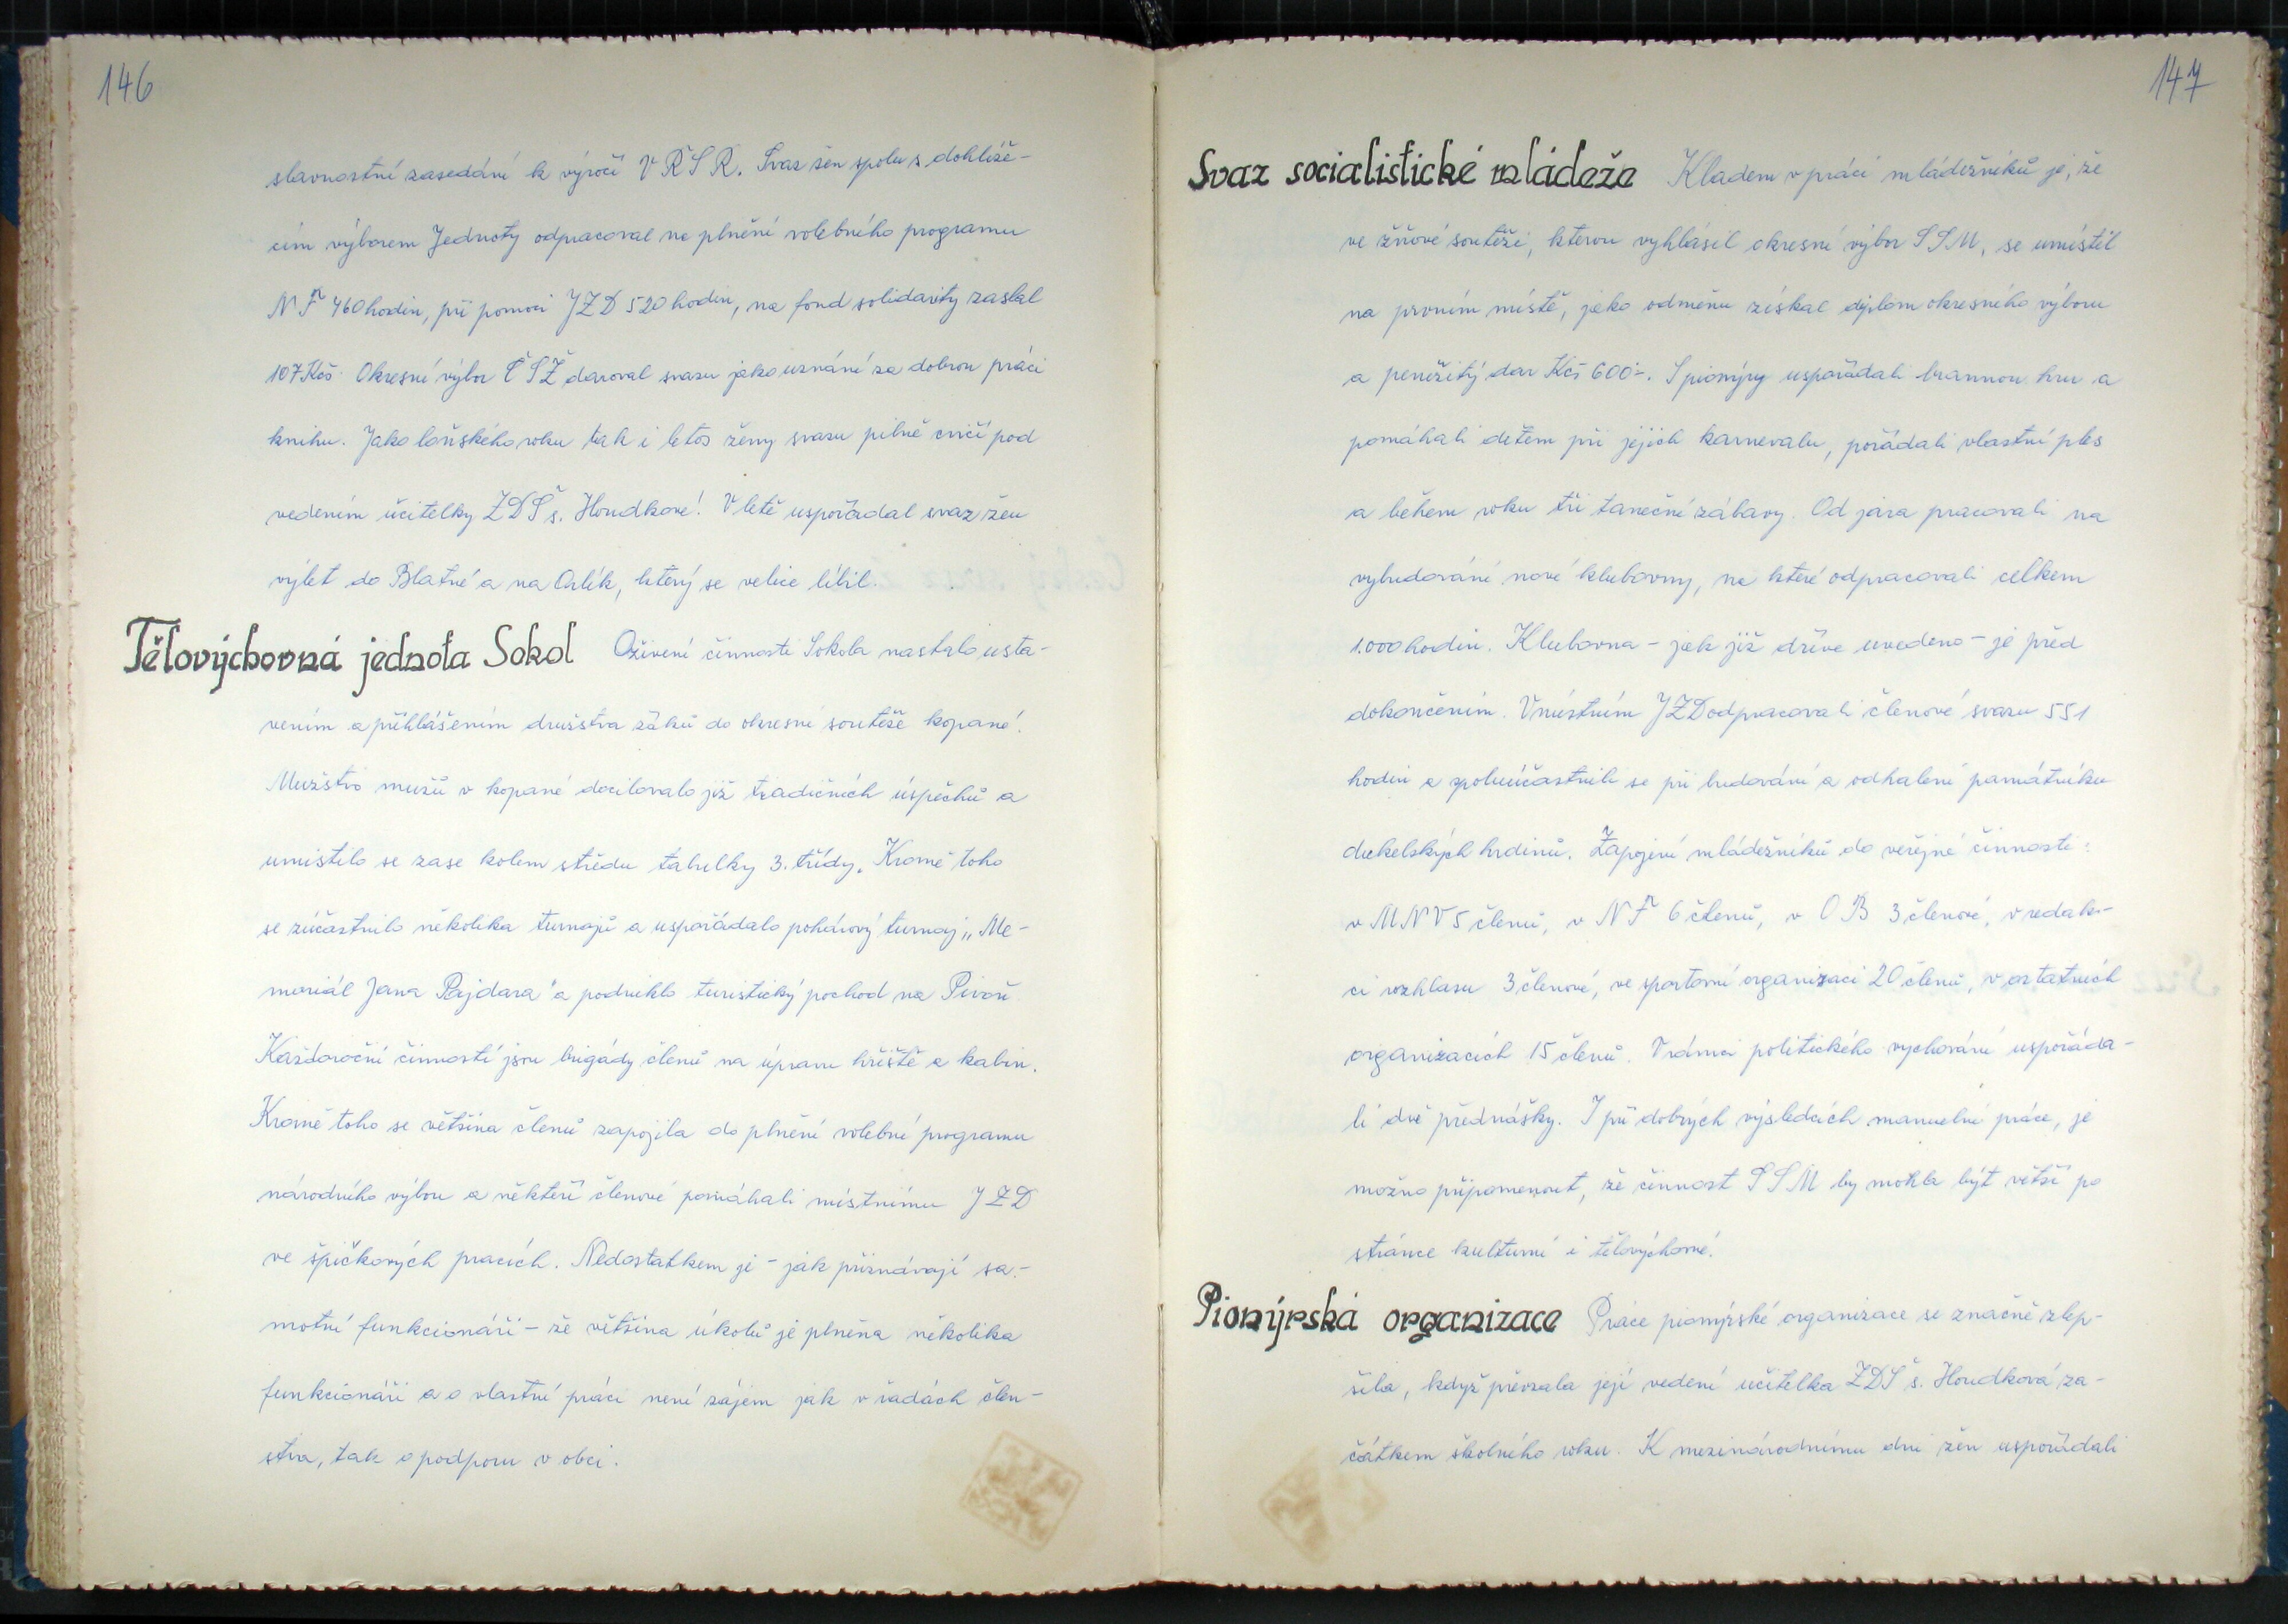 146
slavnostní zasedání k výročí VŘSR. Svaz žen spolu s dohlíže-
cím výborem Jednoty odpracoval na plnění volebního programu
NF 460 hodin, při pomoci JZD 520 hodin, na fond solidarity zaslal
107 Kčs. Okresní výbor ČSŽ daroval svazu jako uznání za dobrou práci
knihu. Jako loňského roku tak i letos ženy svazu pilně cvičí pod
vedením učitelky ZDŠ s. Houdkové. V létě uspořádal svaz žen
výlet do Blatné a na Orlík, který se velice líbil.
Tělovýchovná jednota Sokol Oživení činnosti Sokola nastalo usta-
vením a přihlášením družstva žáků do okresní soutěže kopané.
Mužstvo mužů v kopané docilovalo již tradičních úspěchů a
umístilo se zase kolem středu tabulky 3. třídy. Kromě toho
se zúčastnilo několika turnajů a uspořádalo pohárový turnaj „Me-
moriál Jana Pajdara" a podniklo turistický pochod na Pivoň.
Každoroční činností jsou brigády členů na úpravu hřiště a kabin.
Kromě toho se většina členů zapojila do plnění volební programu
národního výboru a někteří členové pomáhali místnímu JZD
ve špičkových pracích. Nedostatkem je - jak přiznávají sa-
motní funkcionáři - že většina úkolů je plněna několika
funkcionáři a o vlastní práci není zájem jak v řadách člen-
stva, tak o podporu v obci.
147
Svaz socialistické mládeže Kladem v práci mládežníků je, že
ve žňové soutěži, kterou vyhlásil okresní výbor SSM, se umístil
na prvním místě, jako odměnu získal diplom okresního výboru
a peněžitý dar Kčs 600.-. S pionýry uspořádali brannou hru a
pomáhali dětem při jejich karnevalu, pořádali vlastní ples
a během roku tři taneční zábavy. Od jara pracovali na
vybudování nové klubovny, na které odpracovali celkem
1.000 hodin. Klubovna - jak již dříve uvedeno - je před
dokončením. V místním JZD odpracovali členové svazu 551
hodin a spoluúčastnili se při budování a odhalení památníku
dukelských hrdinů. Zapojení mládežníků do veřejné činnosti:
v MNV 5 členů, v NF 6 členů, v OB 3 členové, v redak-
ci rozhlasu 3 členové, ve sportovní organizaci 20 členů, v ostatních
organizacích 15 členů. V rámci politického vychování uspořáda-
li dvě přednášky. I při dobrých výsledcích manuelní práce, je
možno připomenout, že činnost SSM by mohla být větší po
stránce kulturní i tělovýchovné.
Pionýrská organizace Práce pionýrské organizace se značně zlep-
šila, když převzala její vedení učitelka ZDŠ s. Houdková za-
čátkem školního roku. K mezinárodnímu dni žen uspořádali